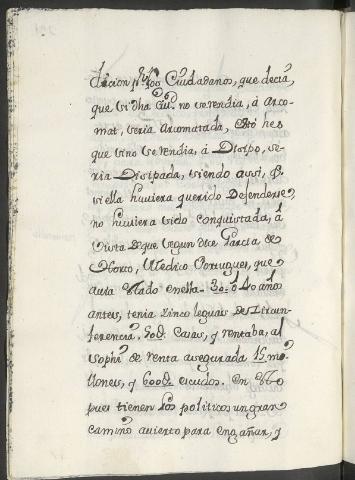 dicion p.r los Ciudadanos, que decia,
que si dha Ciud. no se rendia, à Arco-
mat, seria Arcomatada, Estó hes
que sino se rendia, à Diospo, se-
ria Disipada, siendo assi, q.e
si ella huviera querido Defenderse,
no huviera sido conquistada, à
vista Deque segun dice Garcia de
Horto, Medico Portugues, que
avia estado en ella 30. ò 40 años
antes, tenia cinco leguas de Circun-
ferencia, 50d. Casas, y rentaba, al
Sophi de renta asegurada 15 mi-
llones, y 600d. escudos. En
pues tienen los politicos un gran
camino avierto para engañar, y